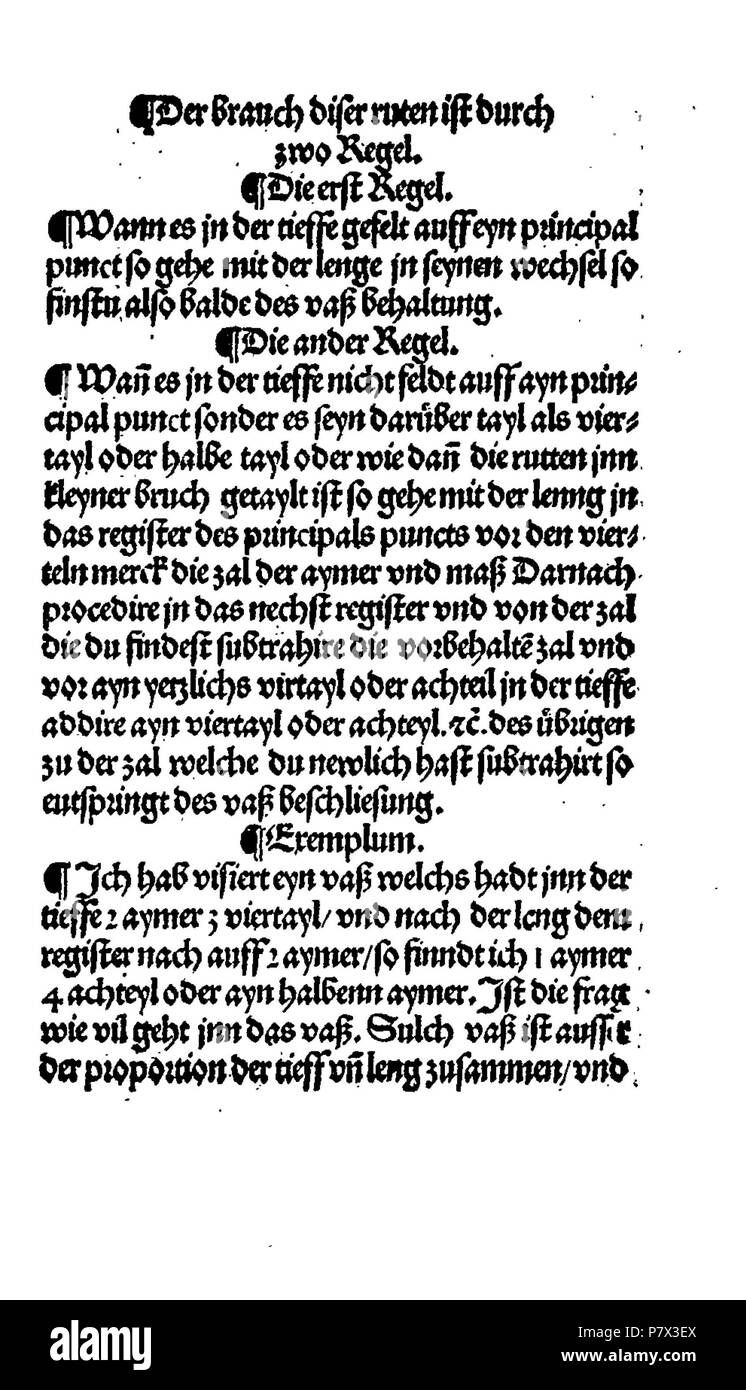 ¶Der brauch diser ruten ist durch
zwo Regel.
¶Die erst Regel.
¶Wann es jn der tieffe gefelt auff eyn principal
punct so gehe mit der lenge jn seynen wechsel so
finstu also balde des vaß behaltung.
¶Die ander Regel.
¶ Wan̄ es jn der tieffe nicht feldt auff ayn prin⸗
cipal punct sonder es seyn darüber tayl als vier⸗
tayl oder halbe tayl oder wie dan̄ die rutten jnn
kleyner bruch getaylt ist so gehe mit der lenng jn
das register des principals puncts vor den vier⸗
teln merck die zal der aymer vnd maß Darnach
procedire jn das nechst register vnd von der zal
die du findest subtrahire die vorbehaltē zal vnd
vor ayn yerzlichs virtayl oder achteil jn der tieffe
addire ayn viertayl oder achteyl. ⁊c̄. des übrigen
zu der zal welche du newlich hast subtrahirt so
entspringt des vaß beschliesung.
¶Exemplum.
¶ Ich hab visiert eyn vaß welchs hadt jnn der
tieffe 2 aymer 3 viertayl/ vnd nach der leng dem
register nach auff 2 aymer/ so finndt ich 1 aymer
4 achteyl oder ayn halbenn aymer. Ist die frag
wie vil geht jnn das vaß. Sulch vaß ist ausser
der proportion der tieff vn̄ leng zusammen/ vnd
alamy
alamy
Image ID: P7X3EX
www.alamy.com